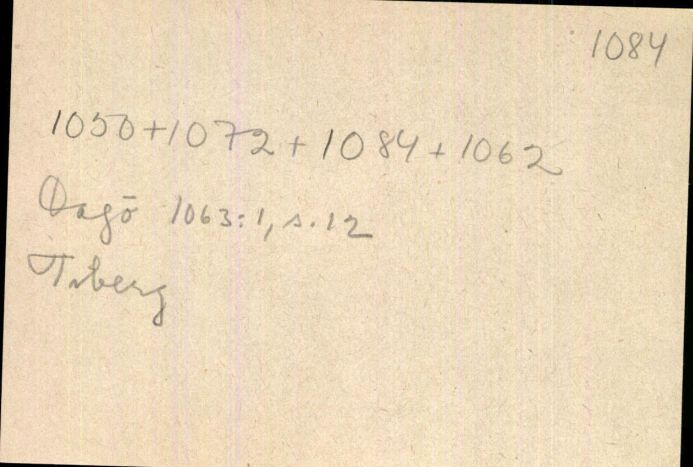 1084
1050+1072+1084+1062
Dagö 1063:1, s.12
Tiberg